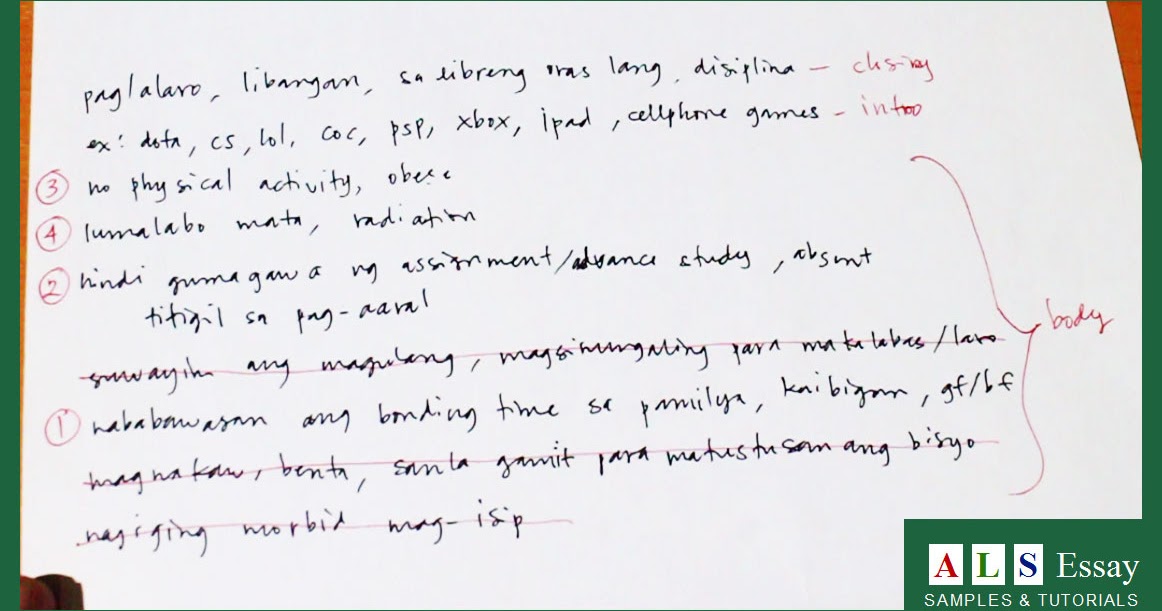 paglalaro, libangan, sa libreng oras lang, disiplina – closing
ex: dota, cs, lol, coc, psp, xbox, ipad, cellphone games – intro
③ no physical activity, obese
④ lumalabo mata, radiation
② hindi gumagawa ng assignment/advance study, absent
titigil sa pag-aaral
suwayin ang magulang, magsinungaling para makalabas/laro
① nababawasan ang bonding time sa pamilya, kaibigan, gf/bf
magnakaw, benta, sanla gamit para matustusan ang bisyo
nagiging morbid mag-isip
body
ALS Essay
SAMPLES & TUTORIALS